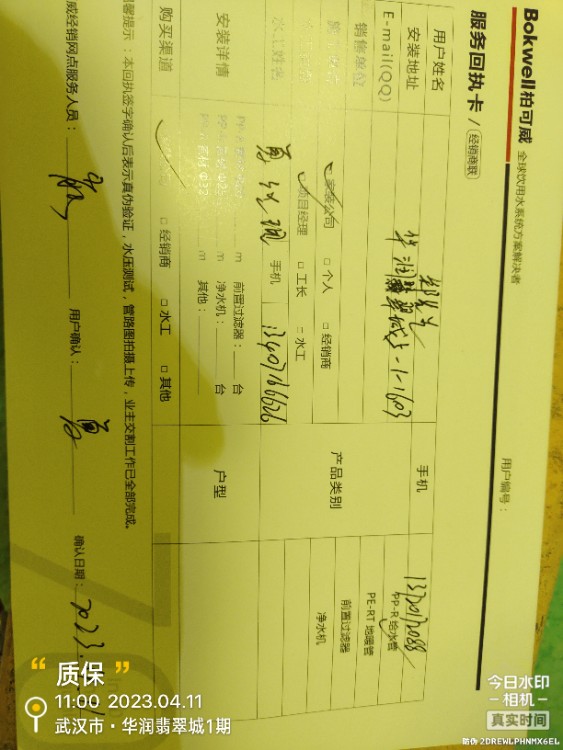 Bokwell柏可威 全球饮用水系统方案解决者
服务回执卡 / 经销商联
用户编号：
用户姓名
手机
安装地址 华润翡翠城5-1-1603
E-mail(QQ)
产品类别
PP-R 给水管
PE-RT 地暖管
前置过滤器
净水机
销售单位
家装公司 □ 个人 □ 经销商
项目经理 □ 工长 □ 水工
手机 13407166626
安装详情
m 前置过滤器： 台
m 净水机： 台
m 其他：
户型
购买渠道
□ 经销商 □ 水工 □ 其他
温馨提示：本回执签字确认后表示真伪验证，水压测试，管路图拍摄上传，业主交割工作已全部完成。
威经销网点服务人员：
用户确认：
确认日期： 2023.
“ 质保 ”
11:00 2023.04.11
武汉市·华润翡翠城1期
今日水印
相机
真实时间
防伪 2DREWLPHNMX6EL